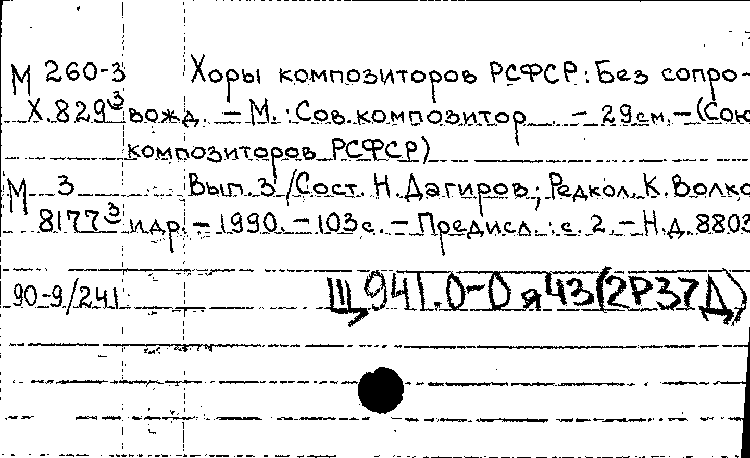 М 260-3 Хоры композиторов РСФСР: Без сопро-
Х.829³ вожд. – М.: Сов.композитор – 29см. – (Сою
композиторов РСФСР)
М 3 Вып.3/Сост. Н.Дагиров; Редкол. К.Волко
8177³ и др. – 1990. – 103с. – Предисл.: с.2. – Н.д.8803
90-9/241 Щ941.0-0я43(2Р37Д)